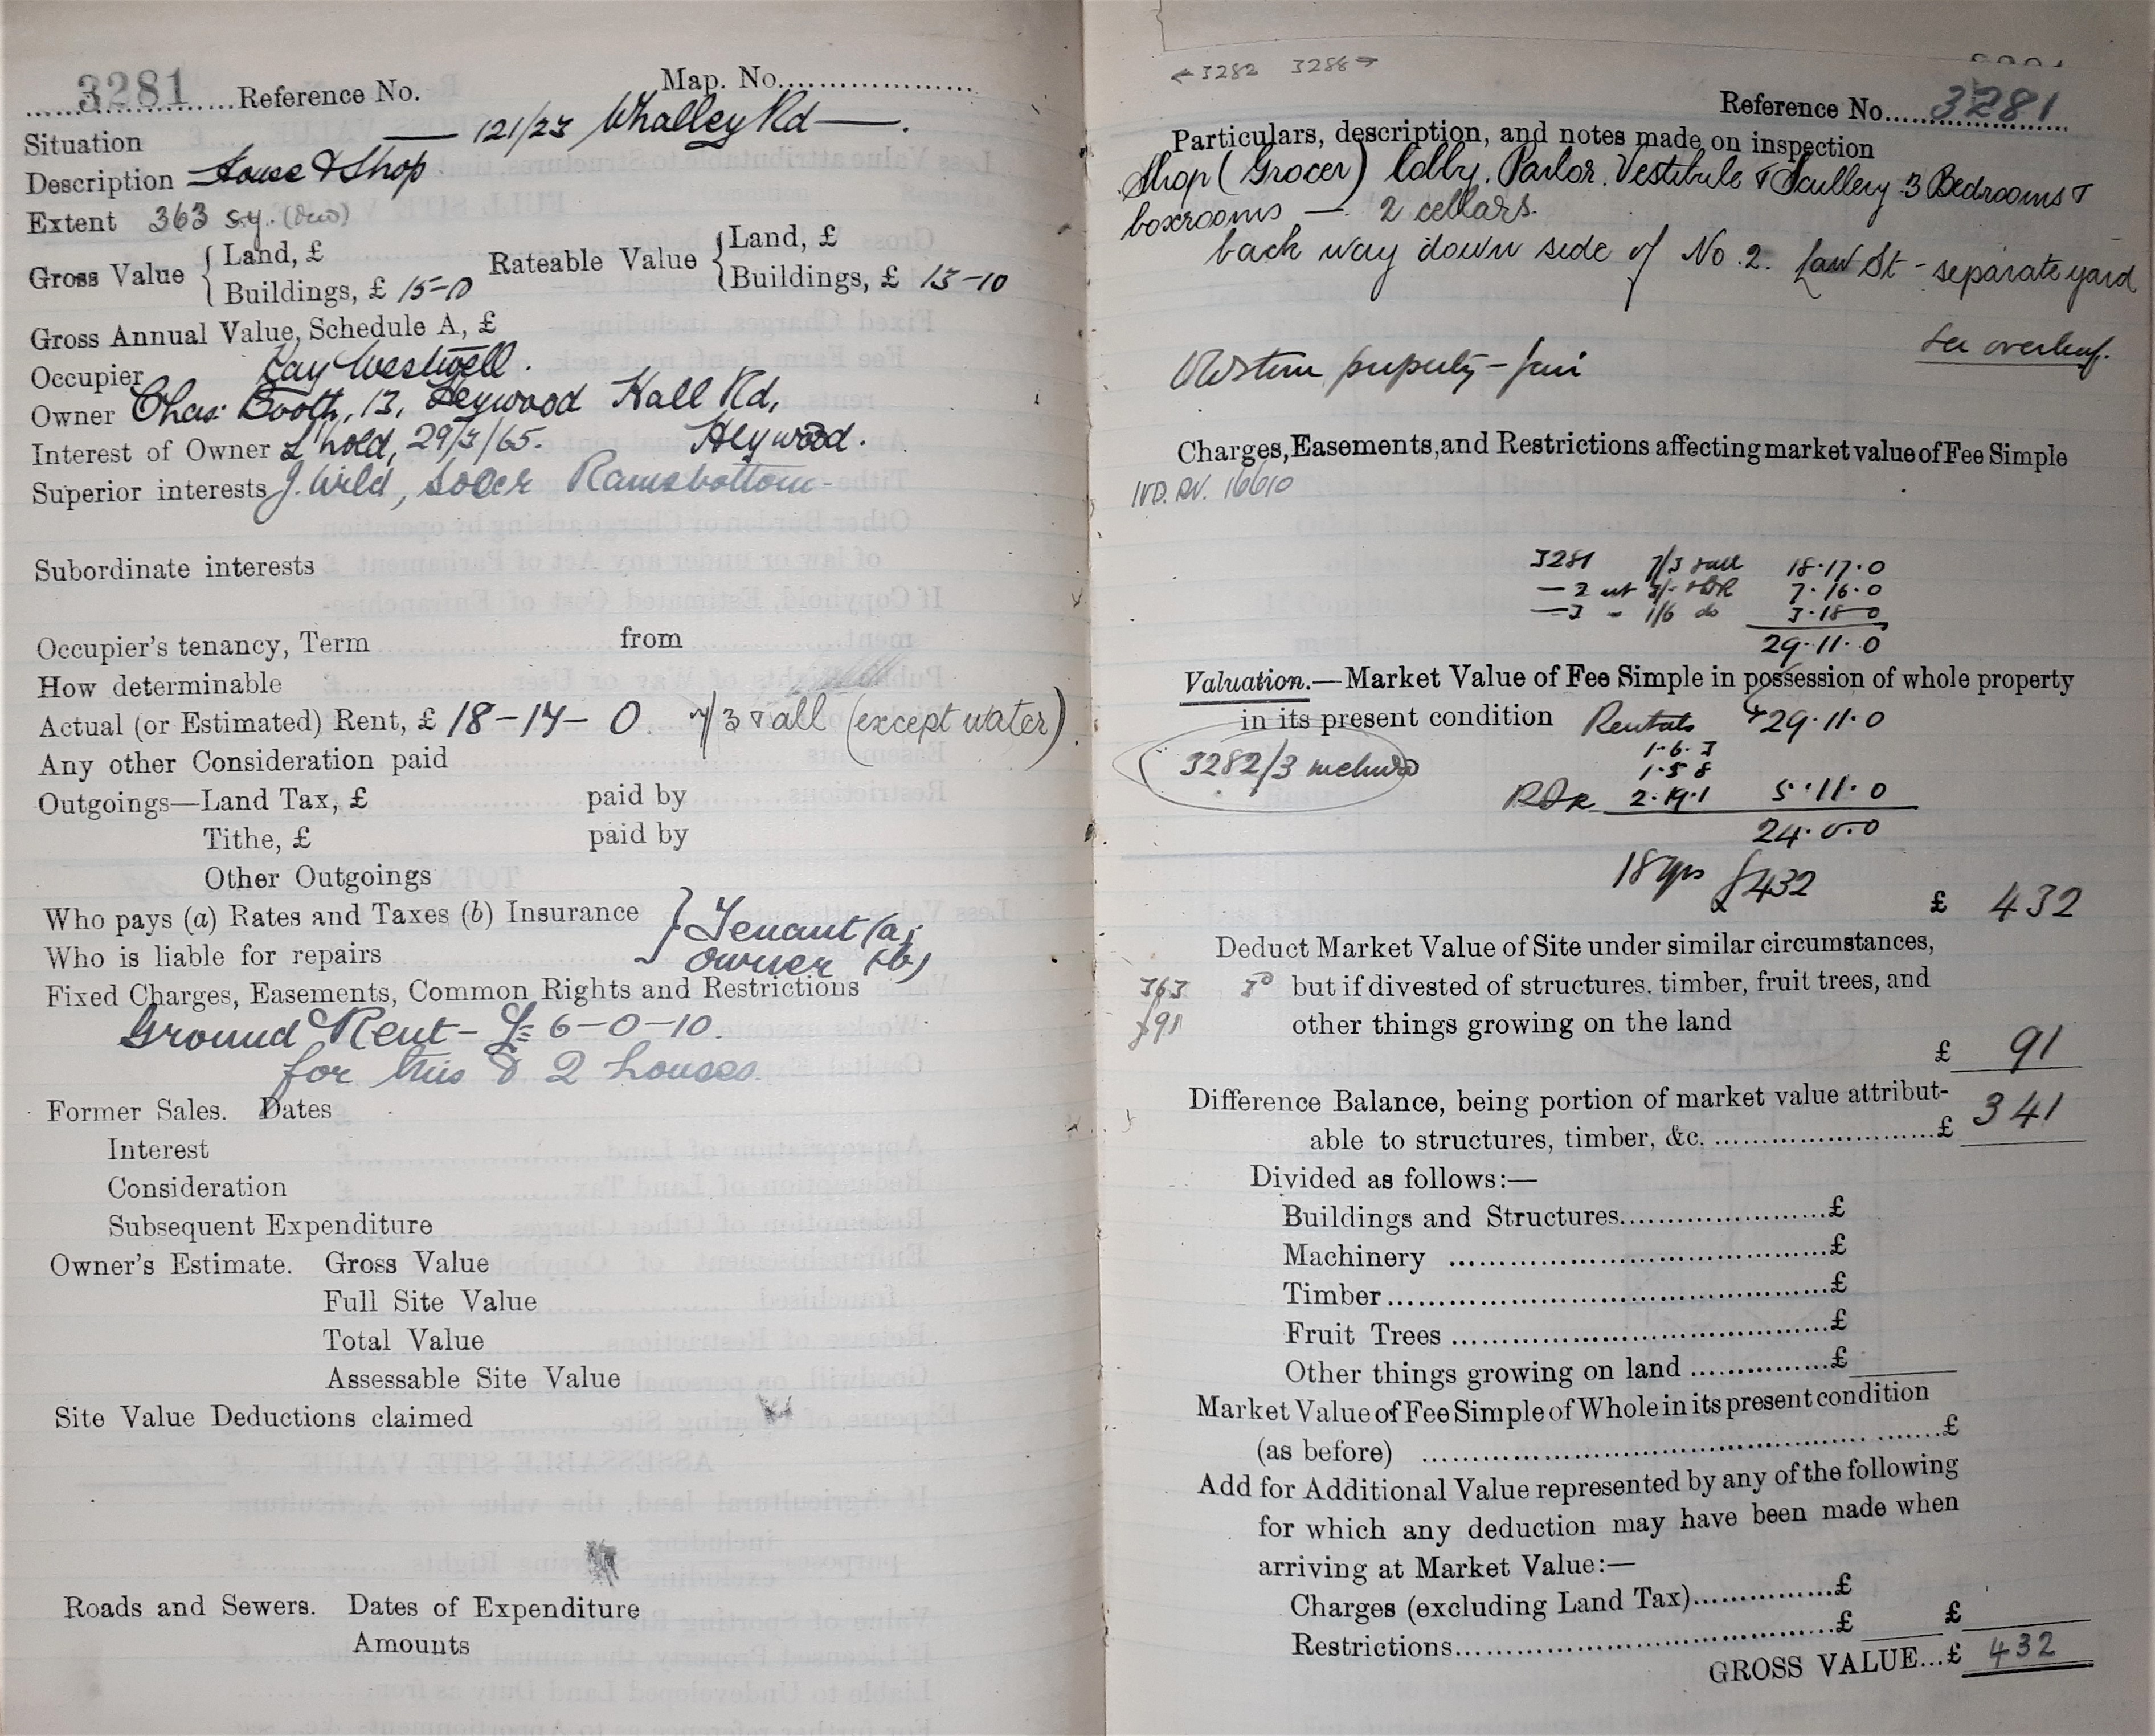 3281 Reference No. Map. No.
Situation — 121/23 Whalley Rd —.
Description House & Shop
Extent 363 s.y.
Gross Value { Land, £ Rateable Value { Land, £
Buildings, £ 15-0 Buildings, £ 13-10
Gross Annual Value, Schedule A, £
Occupier Kay Westwell.
Owner Chas: Booth, 13, Heywood Hall Rd,
Heywood.
Interest of Owner L'hold, 29/3/65.
Superior interests J. Wild, Solcr Ramsbottom-
Subordinate interests
Occupier's tenancy, Term from
How determinable
Actual (or Estimated) Rent, £ 18-14-0 7/3 & all (except water)
Any other Consideration paid
Outgoings—Land Tax, £ paid by
Tithe, £ paid by
Other Outgoings
Who pays (a) Rates and Taxes (b) Insurance } Tenant (a)
Who is liable for repairs owner (b)
Fixed Charges, Easements, Common Rights and Restrictions
Ground Rent - £6-0-10.
for this & 2 houses.
Former Sales. Dates
Interest
Consideration
Subsequent Expenditure
Owner's Estimate. Gross Value
Full Site Value
Total Value
Assessable Site Value
Site Value Deductions claimed
Roads and Sewers. Dates of Expenditure
Amounts
←3282 3288→
Reference No. 3281
Particulars, description, and notes made on inspection
Shop (Grocer) lobby. Parlor. Vestibule & Scullery 3 Bedrooms &
boxrooms —. 2 cellars.
back way down side of No. 2. Law St - separate yard
see overleaf.
Old stone property - fair
Charges, Easements, and Restrictions affecting market value of Fee Simple
IVD. RV. 16610
3281 7/3 & all 18.17.0
— 2 at 3/- 7.16.0
— 3 - 1/6 do 3.18.0
29.11.0
Valuation.—Market Value of Fee Simple in possession of whole property
in its present condition Rentals 29.11.0
1.6.3
3282/3 included 1.5.8
2.19.1 5.11.0
24.0.0
18 yrs £432
£ 432
Deduct Market Value of Site under similar circumstances,
363 but if divested of structures. timber, fruit trees, and
£91 other things growing on the land
£ 91
Difference Balance, being portion of market value attribut-
able to structures, timber, &c. £ 341
Divided as follows:—
Buildings and Structures £
Machinery £
Timber £
Fruit Trees £
Other things growing on land £
Market Value of Fee Simple of Whole in its present condition
(as before) £
Add for Additional Value represented by any of the following
for which any deduction may have been made when
arriving at Market Value:—
Charges (excluding Land Tax) £
Restrictions £ £
GROSS VALUE...£ 432